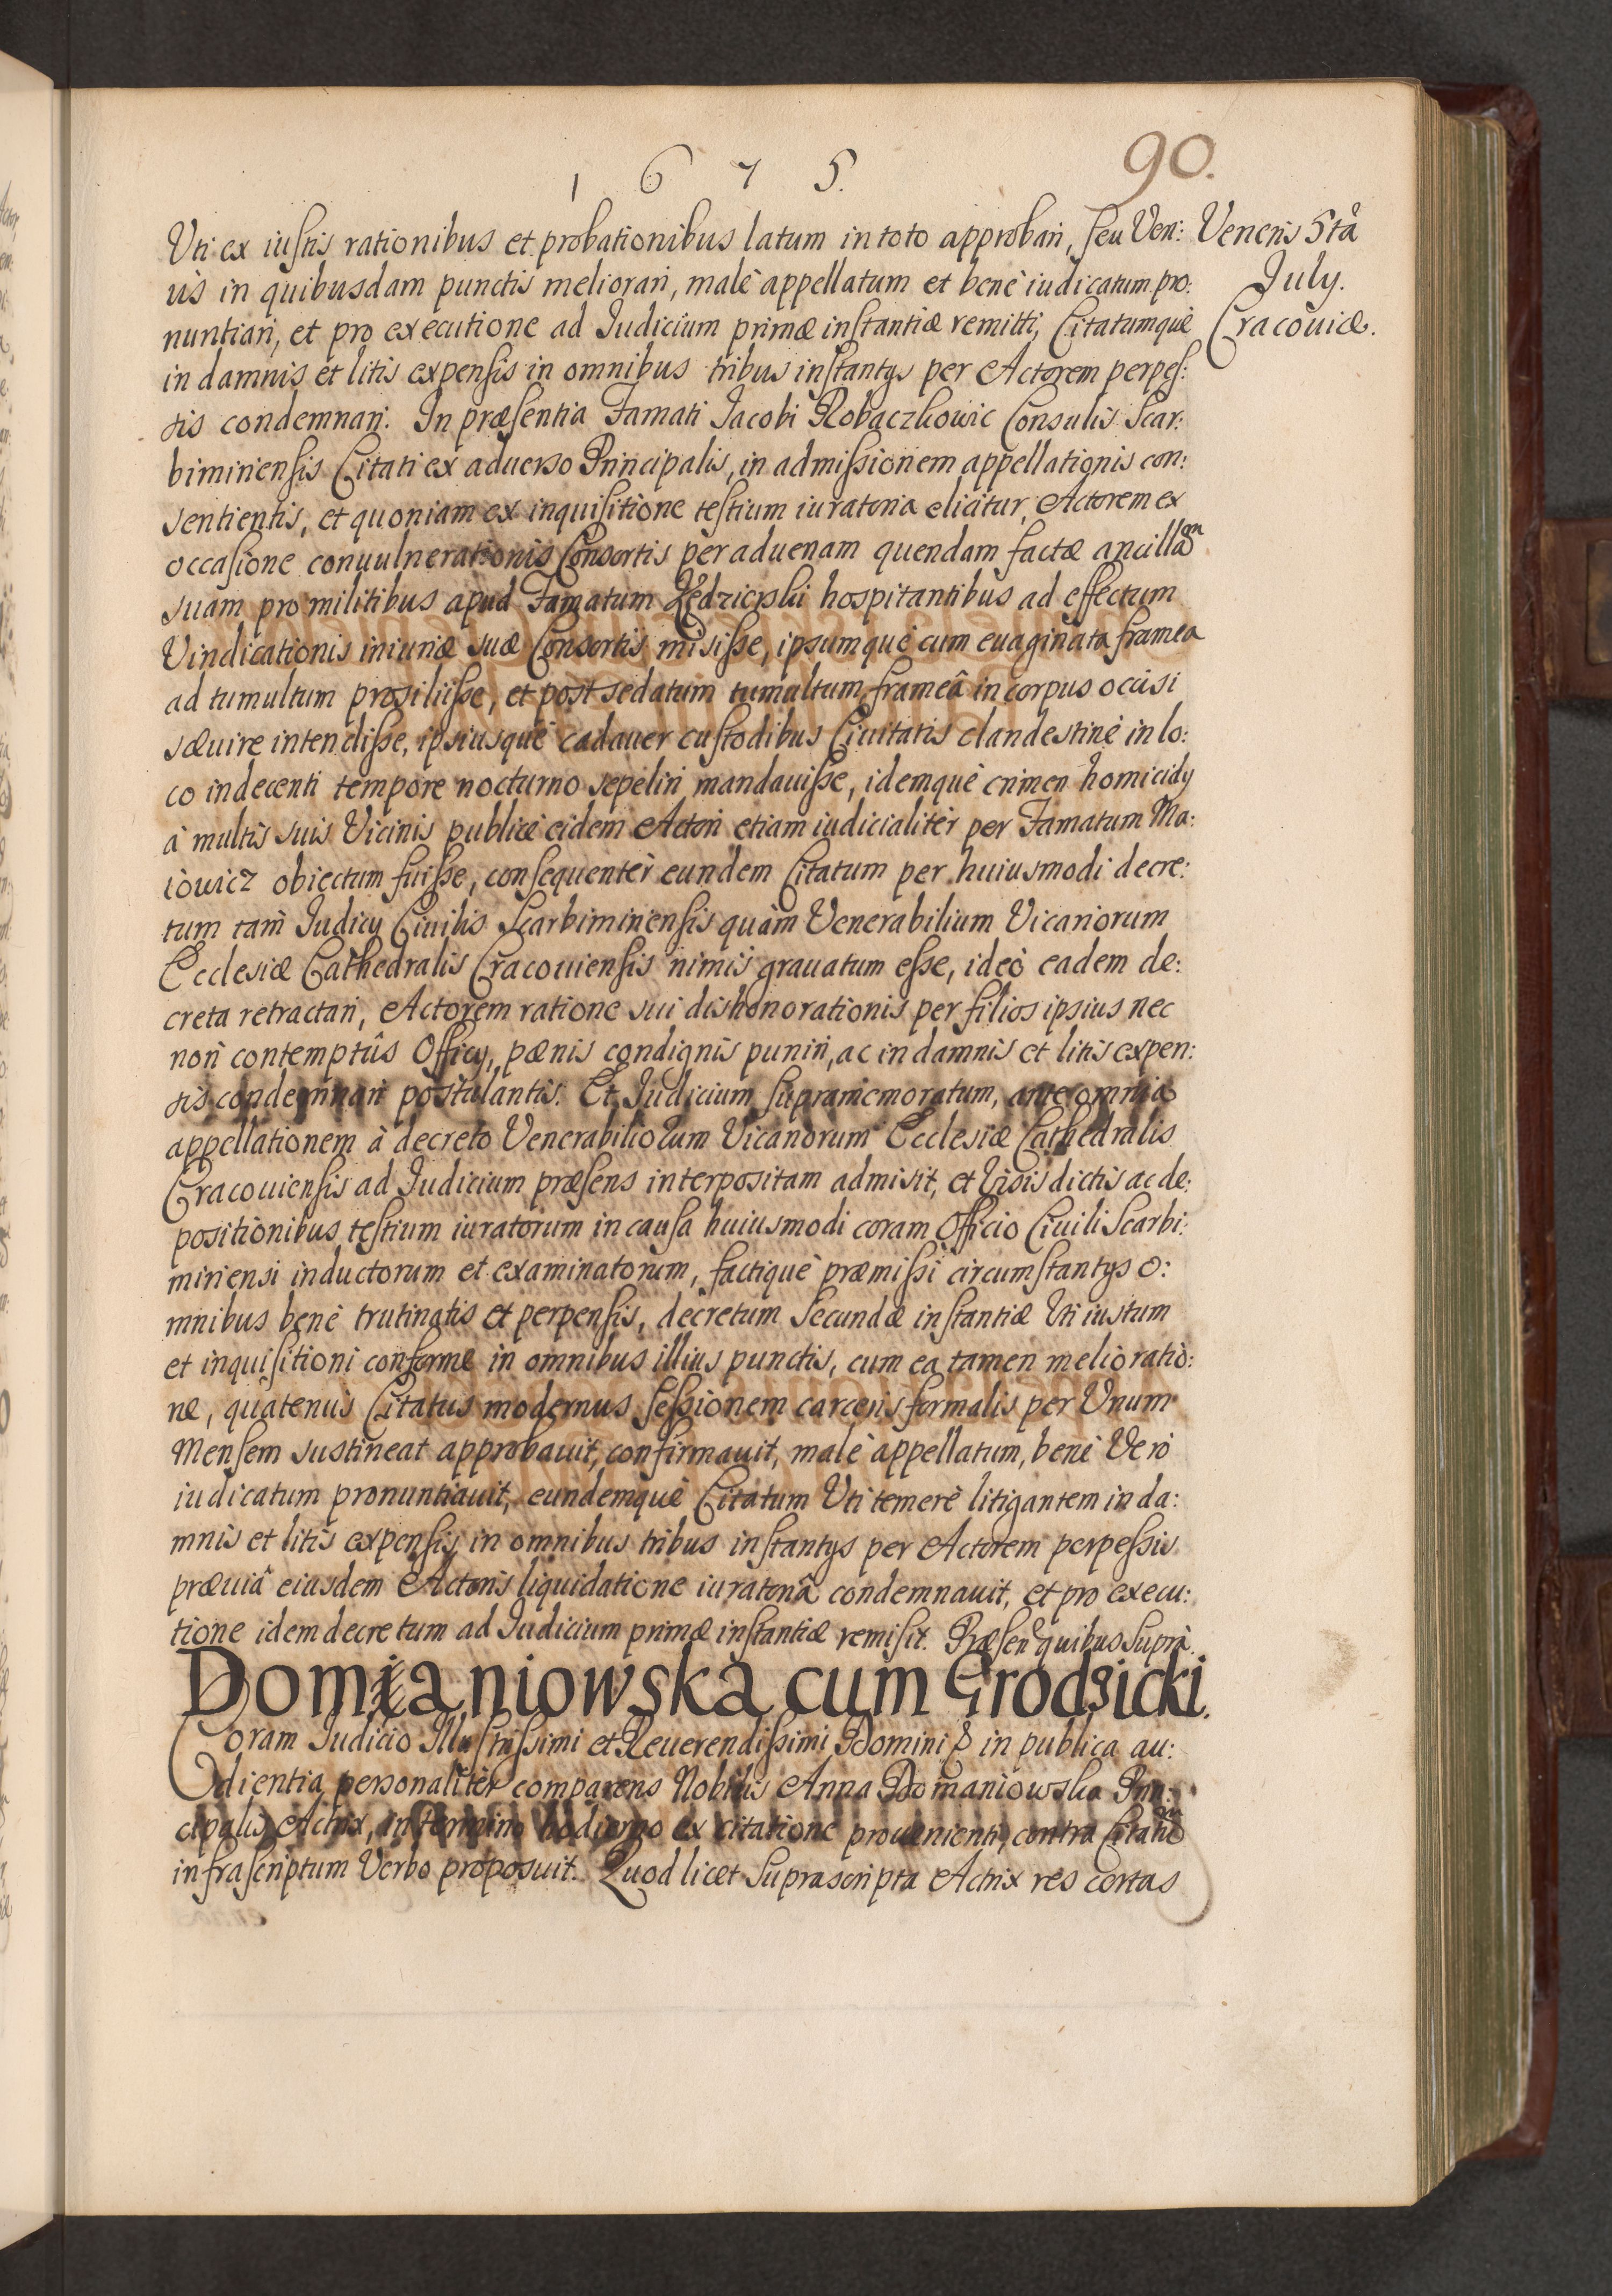 1675.
90.
Veneris 5ta
July.
Cracouiæ.
Vti ex iustis rationibus et probationibus latum in toto approbari, seu Ven:
ùs in quibusdam punctis meliorari, malè appellatum et benè iudicatum pro:
nuntiari, et pro executione ad Iudicium primæ instantiæ remitti, Citatumquè
in damnis et litis expensis in omnibus tribus instantys per Actorem perpes:
sis condemnari. In præsentia Famati Iacobi Robaczkowic Consulis Scar:
bimiriensis Citati ex aduerso Principalis, in admissionem appellationis con:
sentientis, et quoniam ex inquisitione testium iuratoria elicitur, Actorem ex
occasione conuulnerationis Consortis per aduenam quendam factæ ancillam
suam pro militibus apud Famatum hospitantibus ad effectum
Vindicationis iniuriæ suæ Consortis misisse, ipsumquè cum euaginata framea
ad tumultum prosiliisse, et post sedatum tumultum, frameâ in corpus occisi
sæuire intendisse, ipsiusquè cadauer custodibus Ciuitatis clandestinè in lo:
co indecenti tempore nocturno sepeliri mandauisse, idemquè crimen homicidy
à multis suis Vicinis publicè eidem Actori etiam iudicialitèr per Famatum Ma:
iowicz obiectum fuisse, consequentèr eundem Citatum per huiusmodi decre:
tum tam Iudicy Ciuilis Scarbimiriensis quàm Venerabilium Vicariorum
Ecclesiæ Cathedralis Cracouiensis nimis grauatum esse, ideò eadem de:
creta retractari, Actorem ratione sui dishonorationis per filios ipsius nec
non contemptûs Officy, pænis condignis puniri, ac in damnis et litis expen:
sis condemnari postulantis. Et Iudicium supramemoratum, ante omnia
appellationem à decreto Venerabiliorum Vicariorum Ecclesiæ Cathedralis
Cracouiensis ad Iudicium præsens interpositam admisit, et Visis dictis ac de:
positionibus testium iuratorum in causa huiusmodi coram Officio Ciuili Scarbi:
miriensi inductorum et examinatorum, factiquè præmissi circumstantys o:
mnibus benè trutinatis et perpensis, decretum secundæ instantiæ Vti iustum
et inquisitioni conforme in omnibus illius punctis, cum ea tamen melioratio:
ne, quatenus Citatus modernus sessionem carceris formalis per Vnum
Mensem sustineat approbauit, confirmauit, malè appellatum, benè Verò
iudicatum pronuntiauit, eundemquè Citatum Vti temerè litigantem in da:
mnis et litis expensis in omnibus tribus instantys per Actorem perpessis
præuiâ eiusdem Actoris liquidatione iuratoriâ condemnauit, et pro execu:
tione idem decretum ad Iudicium primæ instantiæ remisit. Præsen: quibus suprà.
Domaniowska cum Grodzicki.
Coram Iudicio Illustrissimi et Reuerendissimi Domini in publica au:
dientia personalitèr comparens Nobilis Anna Domaniowska Prin:
cipalis Actrix, in termino hodierno ex citatione proueniente, contra Citatum
infrascriptum Verbo proposuit. Quod licet suprascripta Actrix res certas